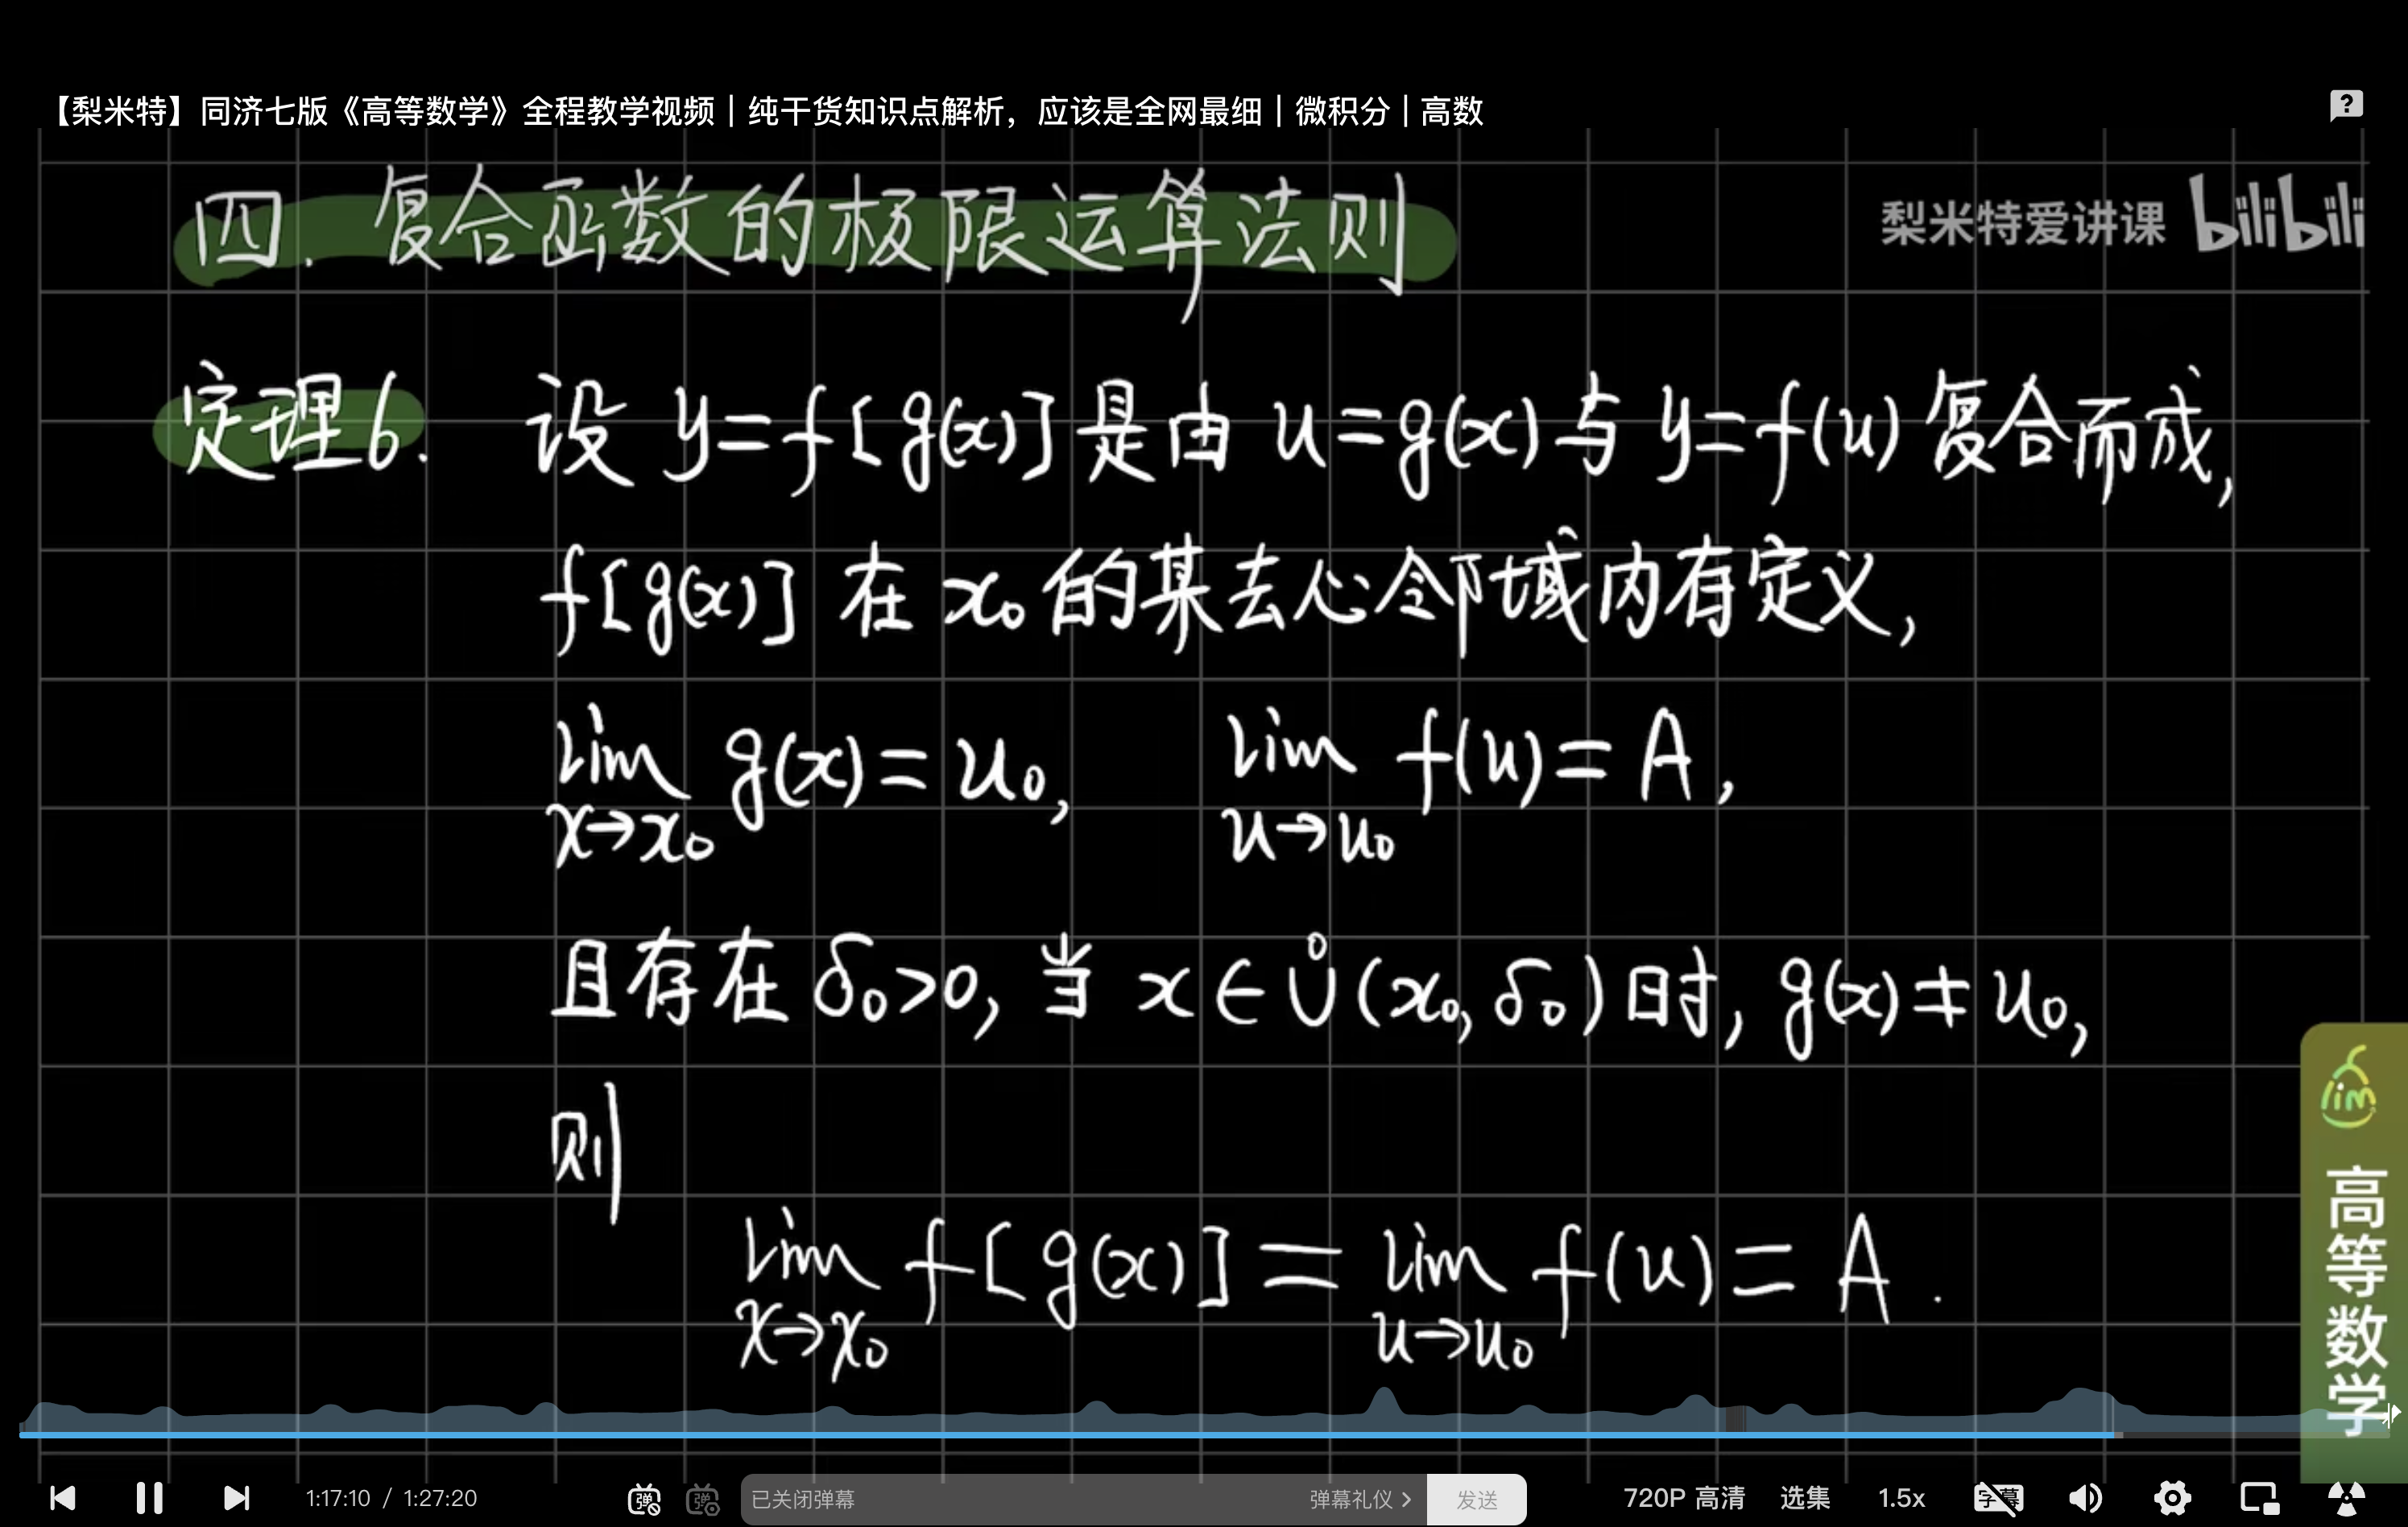 【梨米特】同济七版《高等数学》全程教学视频｜纯干货知识点解析，应该是全网最细｜微积分｜高数
四. 复合函数的极限运算法则
梨米特爱讲课 bilibili
定理6. 设 y=f[g(x)] 是由 u=g(x) 与 y=f(u) 复合而成,
f[g(x)] 在 x₀ 的某去心邻域内有定义,
lim g(x)=u₀, lim f(u)=A,
x→x₀ u→u₀
且存在 δ₀>0, 当 x∈Ů(x₀,δ₀) 时, g(x)≠u₀,
则
lim f[g(x)] = lim f(u) = A.
x→x₀ u→u₀
lim
高等数学
1:17:10 / 1:27:20
弹
弹
已关闭弹幕
弹幕礼仪 >
发送
720P 高清
选集
1.5x
字幕